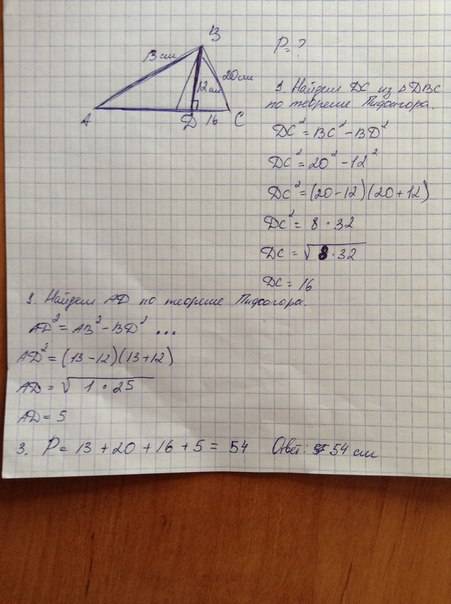 B
13 см
20 см
12 см
A
D
16
C
P = ?
1. Найдем DC из △DBC
по теореме Пифагора.
DC² = BC² - BD²
DC² = 20² - 12²
DC² = (20-12)(20+12)
DC² = 8 · 32
DC = √8·32
DC = 16
2. Найдем AD по теореме Пифагора.
AD² = AB² - BD² ...
AD² = (13-12)(13+12)
AD = √1·25
AD = 5
3. P = 13 + 20 + 16 + 5 = 54 Ответ: 54 см